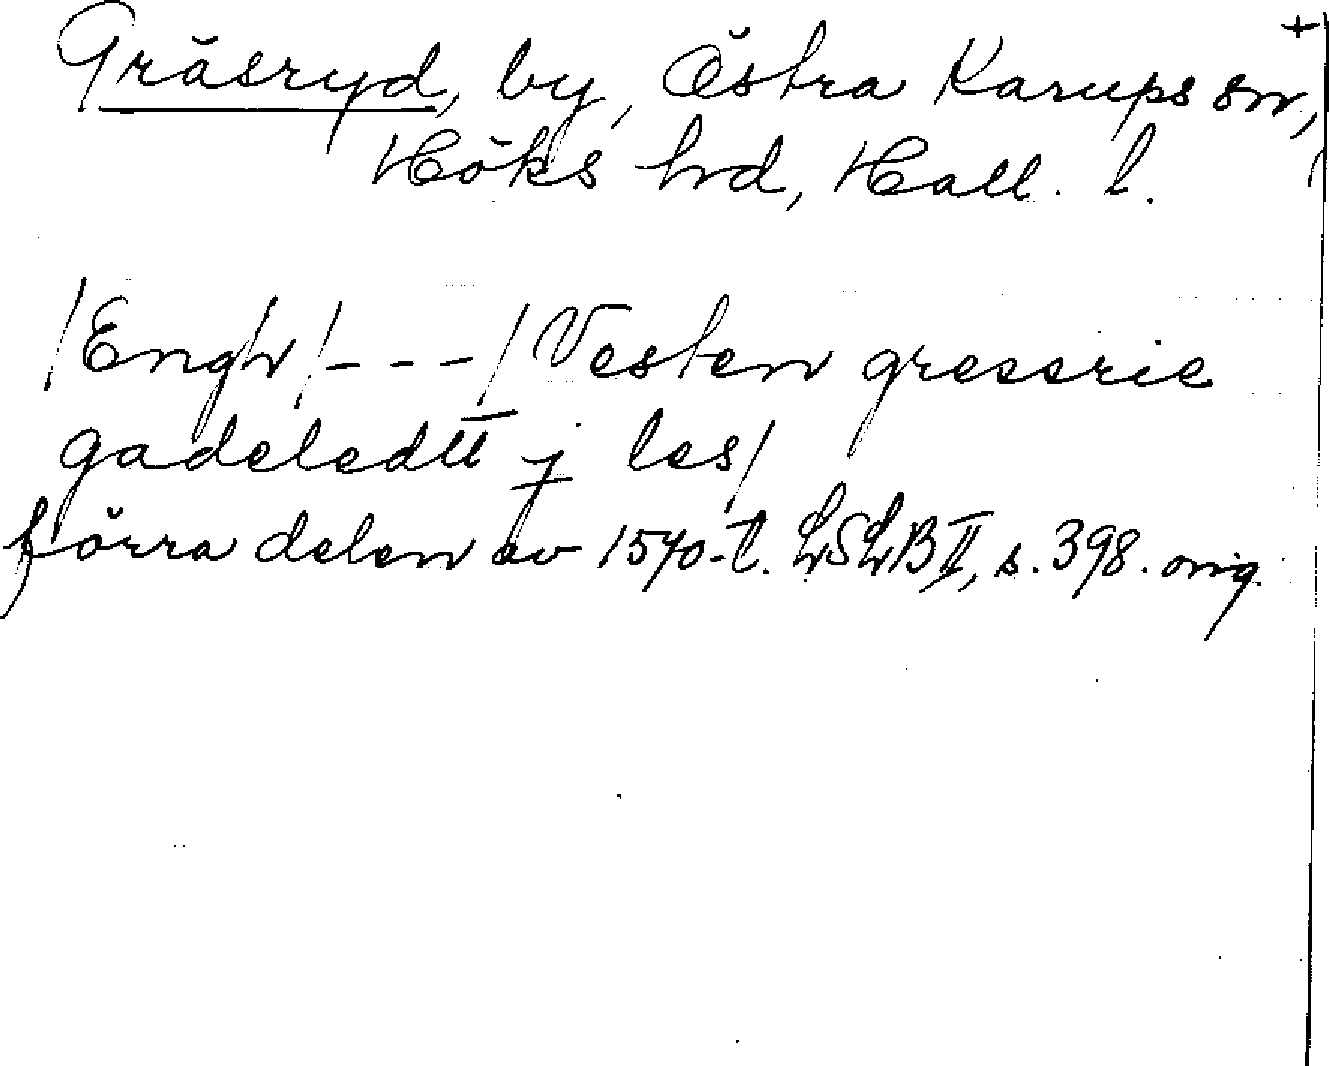 +
Gräsryd, by, Östra Karups sn,
Höks hrd, Hall. l.
/Engh/---/Vesten gresserie
gadeledtt j les/
förra delen av 1570-t. LSLB II, s. 398. orig.